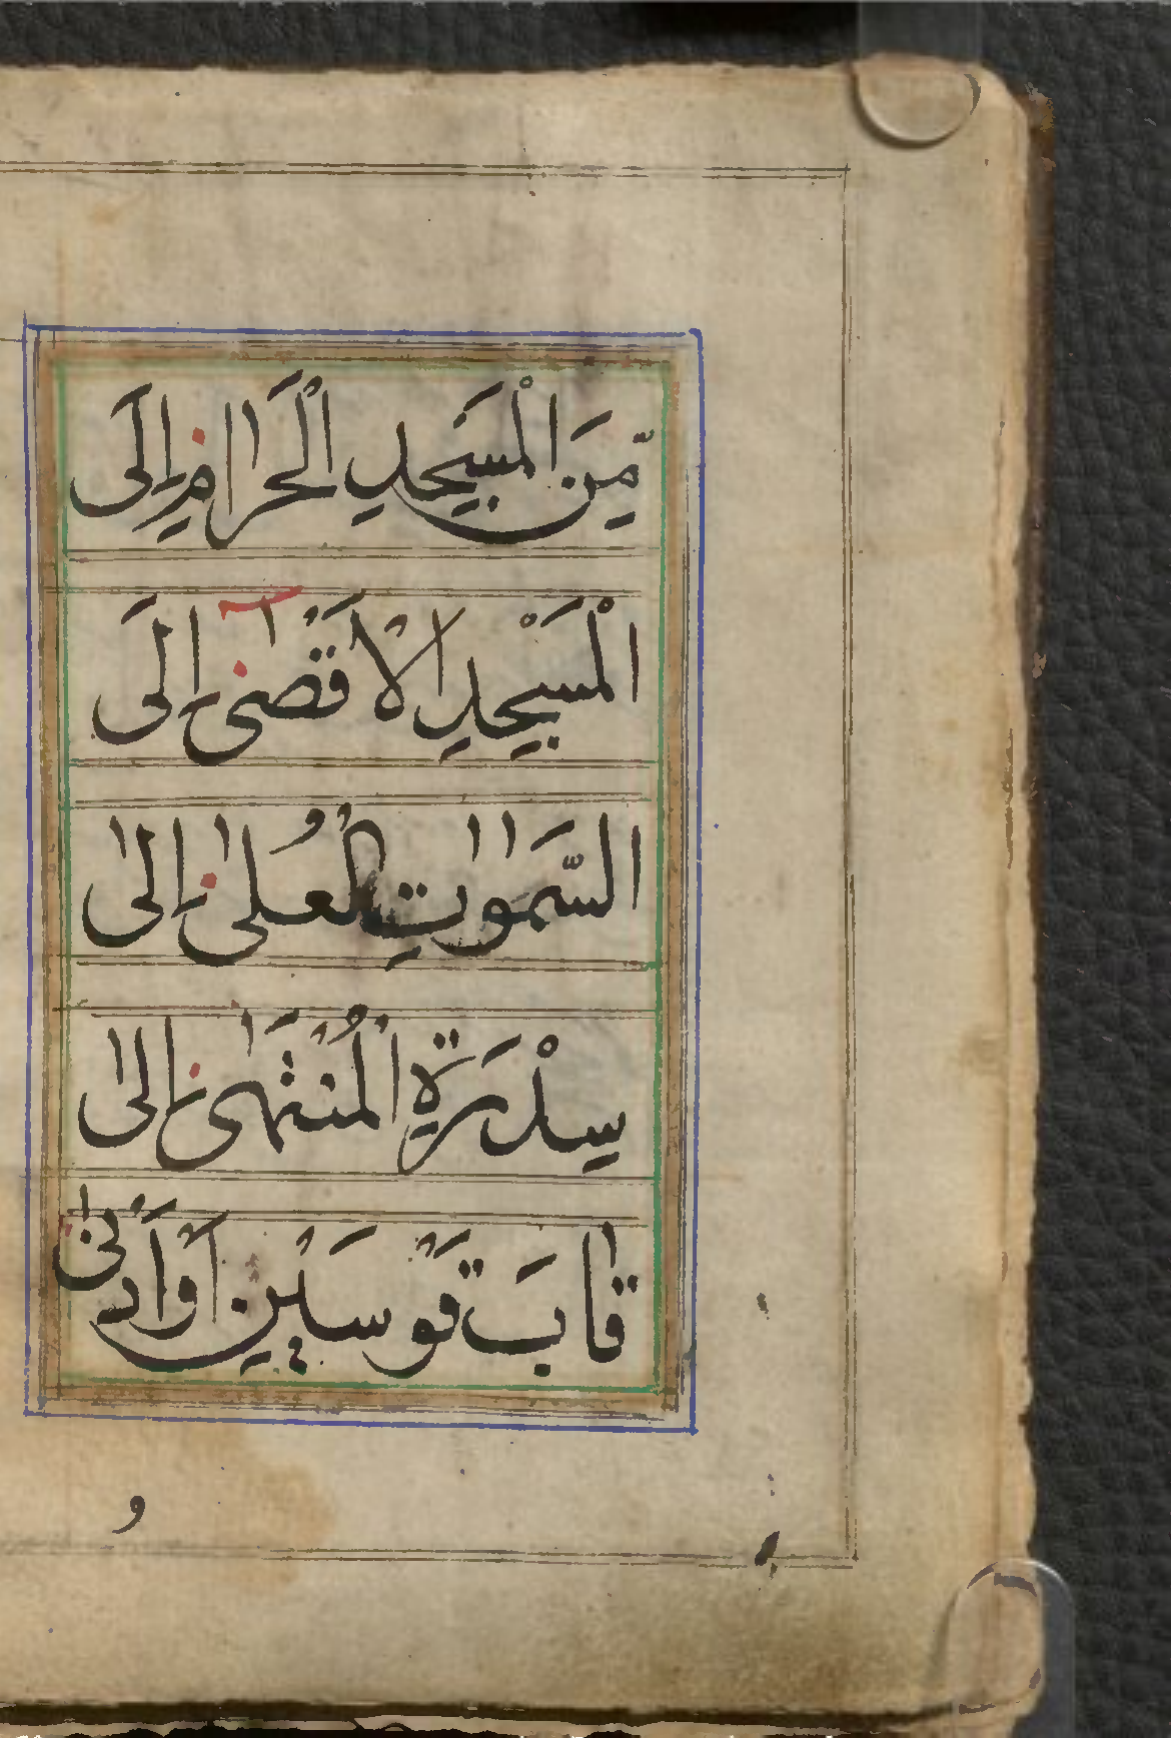 مِّنَ الْمَسْجِدِ الْحَرَامِ اِلَى
الْمَسْجِدِ الْاَقْصٰى اِلَى
السَّمٰوٰتِ الْعُلٰى اِلٰى
سِدْرَةِ الْمُنْتَهٰى اِلٰى
قَابَ قَوْسَيْنِ اَوْ اَدْنٰى
و